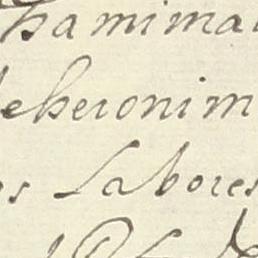 ha mi ma
eheronim
os Labores